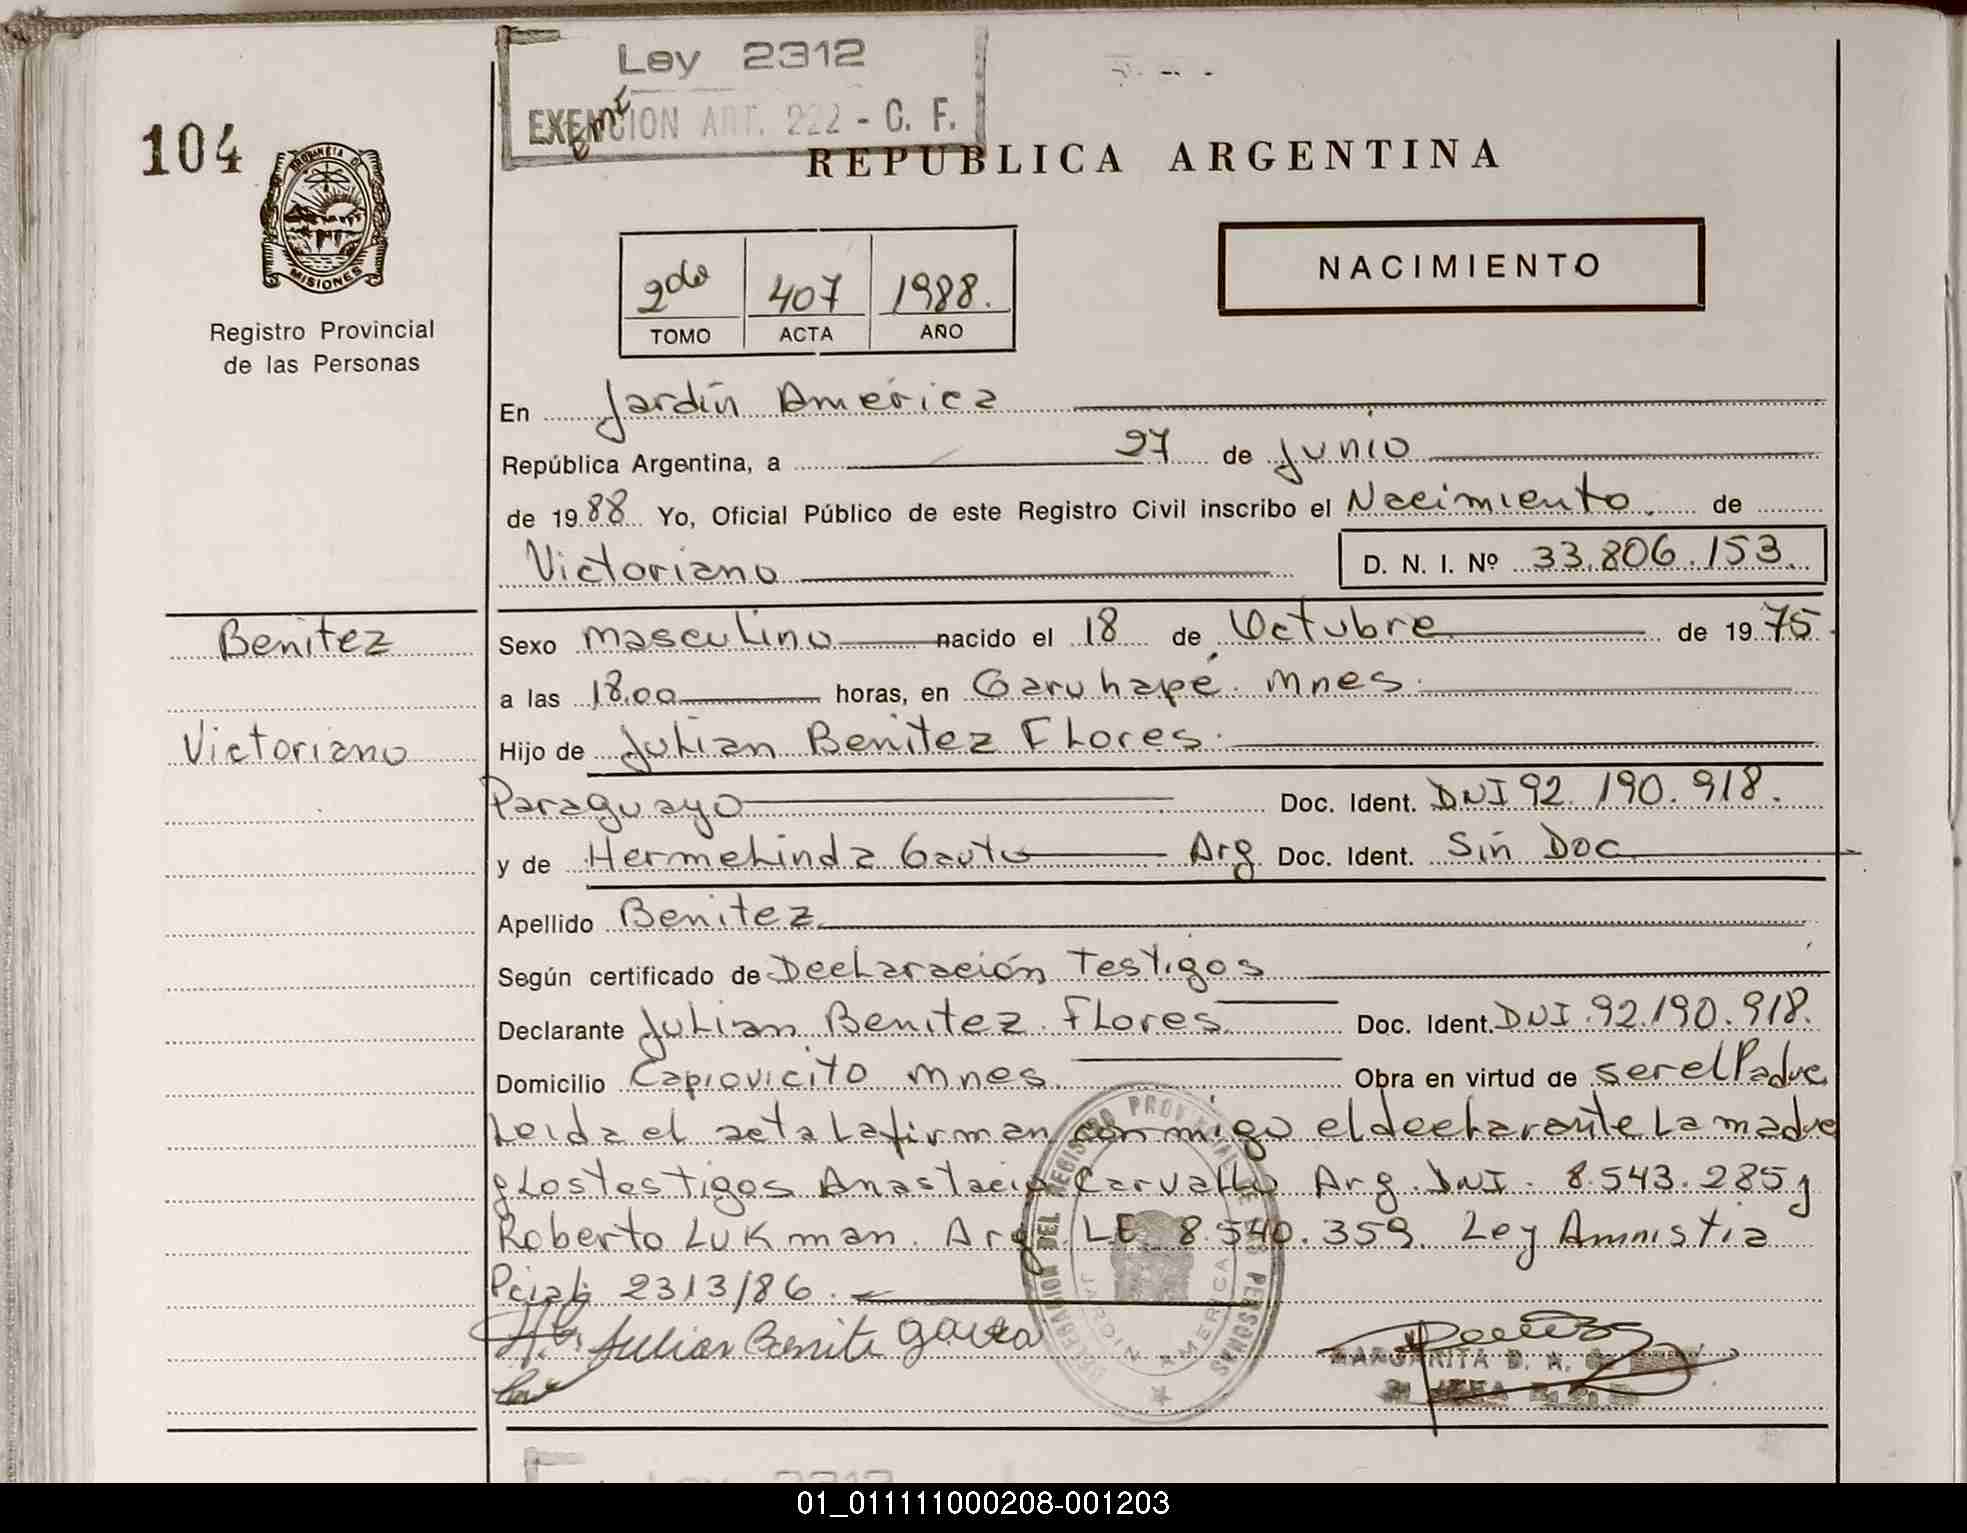 Ley 2312
EXENCION ART. 222 - C. F.
104
REPUBLICA ARGENTINA
PROVINCIA DE
MISIONES
Registro Provincial
de las Personas
2do 407 1988.
TOMO ACTA AÑO
NACIMIENTO
En Jardín América
República Argentina, a 27 de Junio
de 1988 Yo, Oficial Público de este Registro Civil inscribo el Nacimiento. de
Victoriano D. N. I. Nº 33.806.153.
Benitez
Victoriano
Sexo masculino nacido el 18 de Octubre de 1975
a las 18.00 horas, en Garuhapé. Mnes.
Hijo de Julian Benitez Flores.
Paraguayo Doc. Ident. DNI 92.190.918.
y de Hermelinda Gauto Arg. Doc. Ident. Sin Doc
Apellido Benitez
Según certificado de Declaración Testigos
Declarante Julian Benitez Flores Doc. Ident. DNI.92.190.918.
Domicilio Capiovicito Mnes. Obra en virtud de ser el Padre
Leida el acta la firman con migo el declarante La madre
y Los testigos Anastacio Carvallo Arg. DNI. 8.543.285 y
Roberto Lukman. Arg. LE 8.540.359. Ley Amnistia
Pcial 2313/86.
Julian Benite gauto
DELEGACION DEL REGISTRO PROVINCIAL DE LAS PERSONAS
JARDIN AMERICA
MARGARITA
Ley 2312
01_011111000208-001203